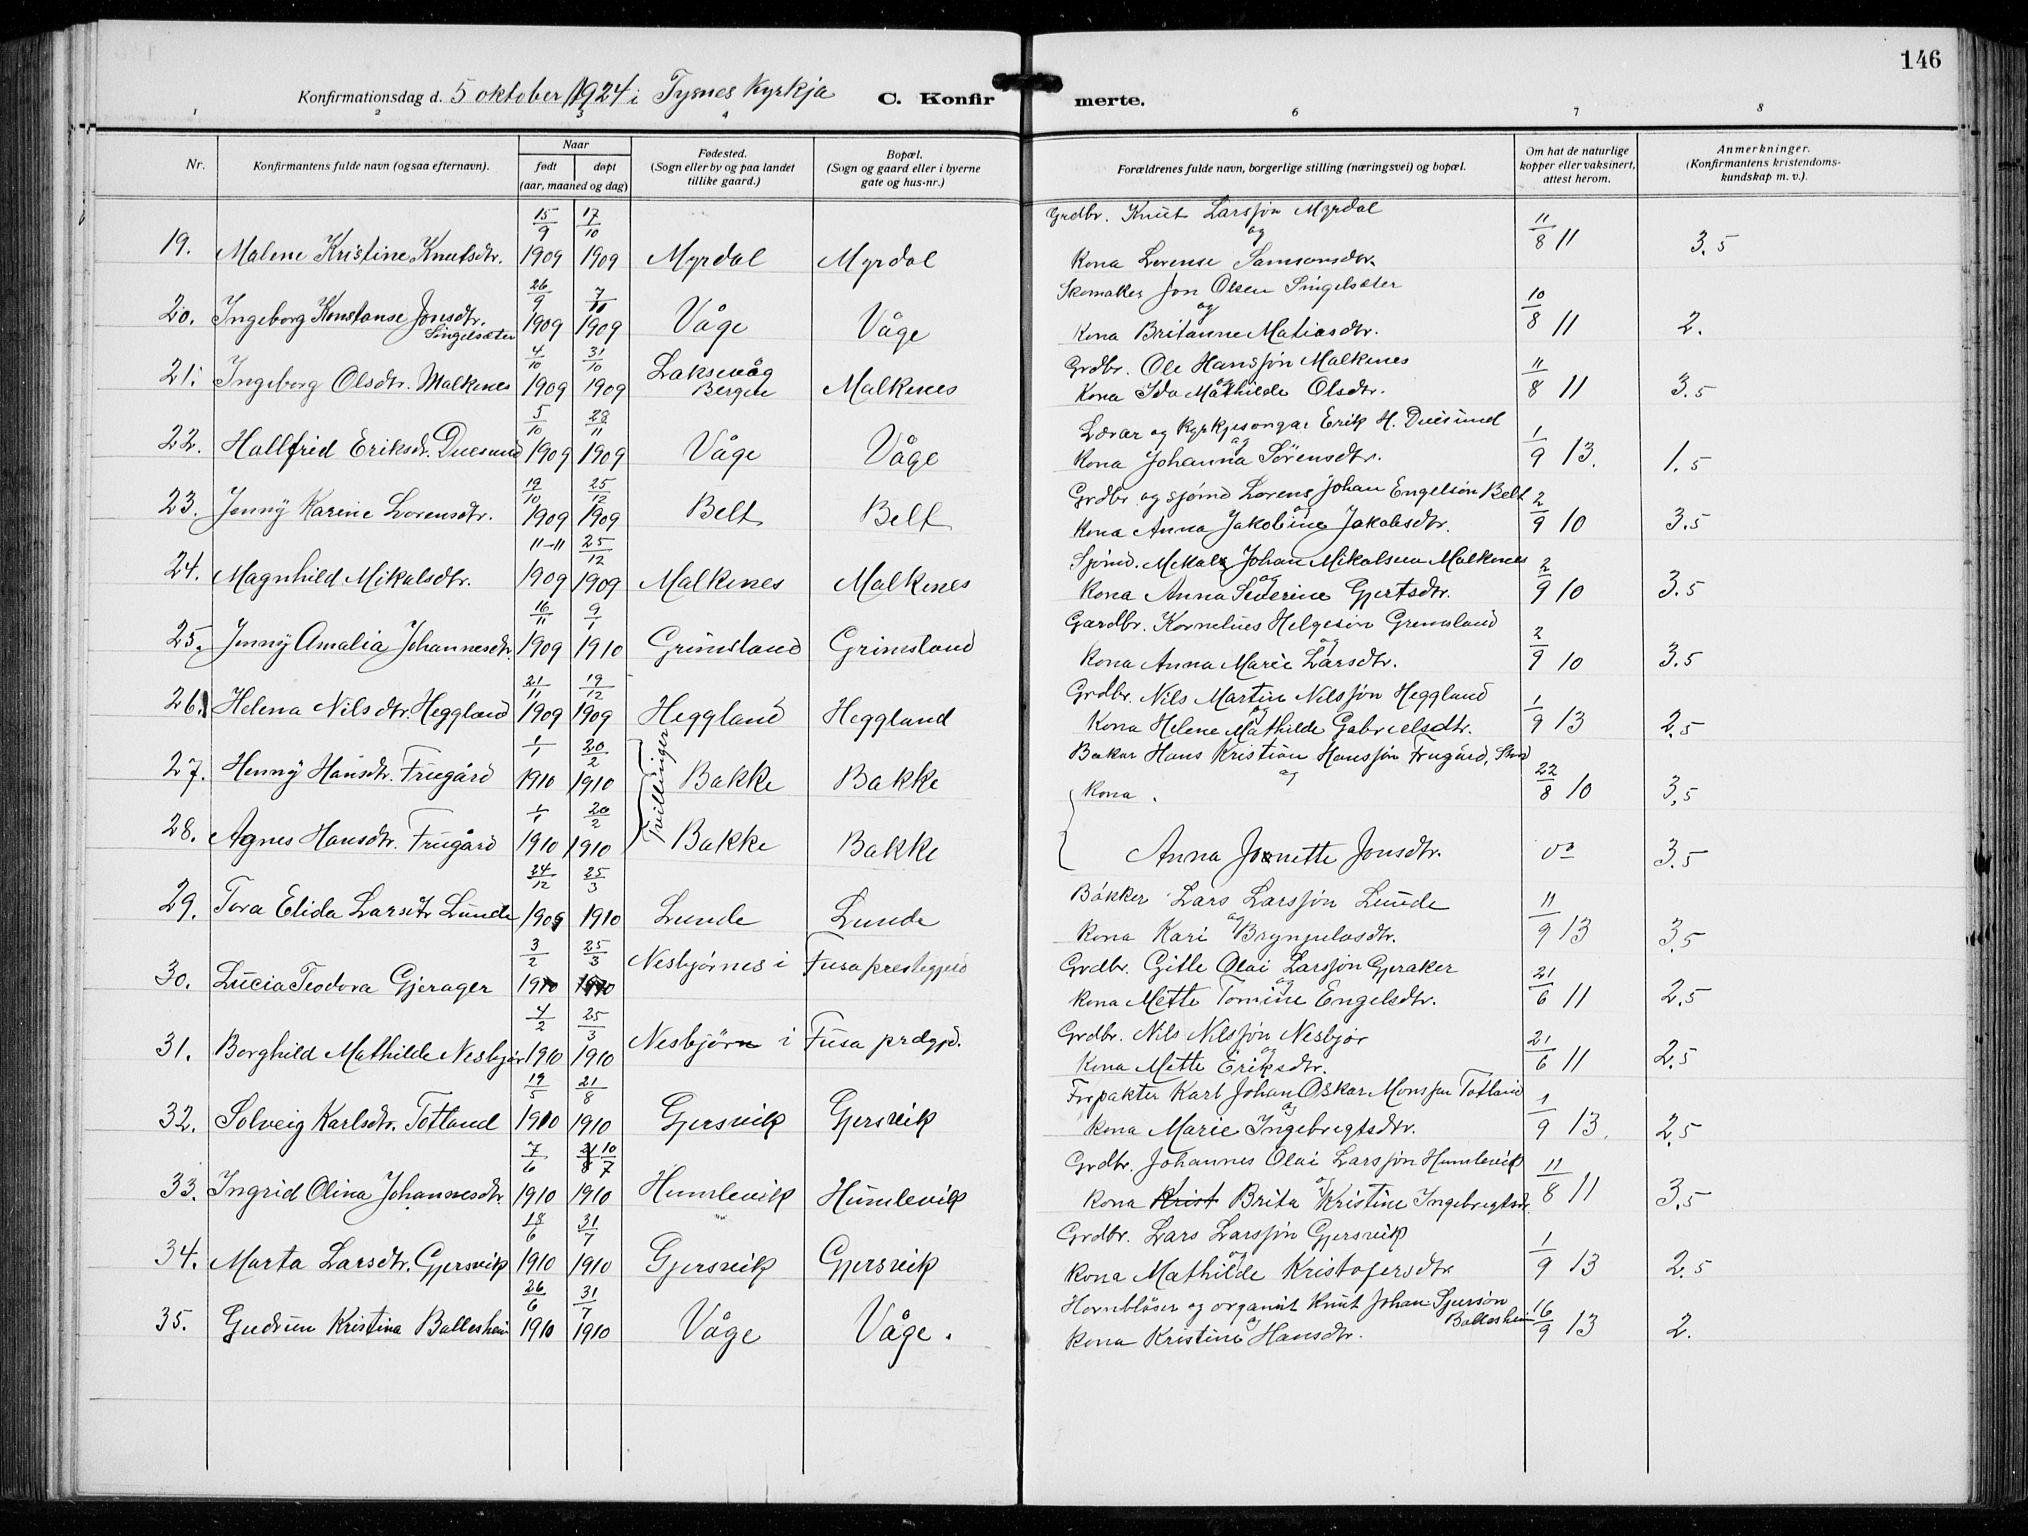 146
Konfirmationsdag d. 5 oktober 1924 i Tysnes Kyrkja C. Konfir merte.
1 2 3 4 6 7 8
Nr. Konfirmantens fulde navn (ogsaa efternavn). Naar født døpt (aar, maaned og dag) Fødested. (Sogn eller by og paa landet tillike gaard.) Bopæl. (Sogn og gaard eller i byerne gate og hus-nr.) Forældrenes fulde navn, borgerlige stilling (næringsvei) og bopæl. Om hat de naturlige kopper eller vaksinert, attest herom. Anmerkninger. (Konfirmantens kristendomskundskap m. v.).
19. Malene Kristine Knutsdtr. 15/9 1909 17/10 1909 Myrdal Myrdal Grdbr. Knut Larssøn Myrdal og Kona Lorense Samsonsdtr. 11/8 11 3.5
20. Ingeborg Konstanse Jonsdtr. Singelsæter 26/9 1909 7/11 1909 Våge Våge Skomaker Jon Olsen Singelsæter og Kona Britanne Matiasdtr. 10/8 11 2.
21. Ingeborg Olsdtr. Malkenes 4/10 1909 31/10 1909 Laksevåg Bergen Malkenes Grdbr. Ole Hanssøn Malkenes og Kona Ida Mathilde Olsdtr. 11/8 11 3.5
22. Hallfrid Eriksdtr. Duesund 5/10 1909 28/11 1909 Våge Våge Lærar og kyrkjesongar Erik H. Duesund og Kona Johanna Sörensdtr. 1/9 13. 1.5
23. Jenny Karine Lorensdtr. 19/10 1909 25/12 1909 Belt Belt Grdbr. og sjømd Lorens Johan Engelsøn Belt og Kona Anna Jakobine Jakobsdtr. 2/9 10 3.5
24. Magnhild Mikalsdtr. 11-11 1909 25/12 1909 Malkenes Malkenes Sjømd. Mikal Johan Mikalsen Malkenes og Kona Anna Severine Gjertsdtr. 2/9 10 3.5
25. Jenny Amalia Johannesdtr. 16/11 1909 9/1 1910 Grimsland Grimsland Gardbr. Kornelius Helgesøn Gremsland og Kona Anna Marie Larsdtr. 2/9 10 3.5
26. Helena Nilsdtr. Heggland 21/11 1909 19/12 1909 Heggland Heggland Grdbr. Nils Martin Nilssøn Heggland og Kona Helene Mathilde Gabrielsdtr. 1/9 13 2.5
27. Henny Hansdtr. Frugård 1/1 1910 20/2 1910 Tvillinger Bakke Bakke Bakar Hans Kristian Hanssøn Frugård, Stord og Kona 22/8 10 3.5
28. Agnes Hansdtr. Frugård 1/1 1910 20/2 1910 Bakke Bakke Anna Jonette Jonsdtr. do 3.5
29. Tora Elida Larsdtr Lunde 24/12 1909 25/3 1910 Lunde Lunde Bókker Lars Larssøn Lunde og Kona Kari Brynjulvsdtr. 11/9 13 3.5
30. Lucia Teodora Gjerager 3/2 1910 25/3 1910 Nesbjørnes i Fusa prestegjeld Grdbr. Gitle Olai Larssøn Gjeraker og Kona Mette Tomine Engelsdtr. 21/6 11 2.5
31. Borghild Mathilde Nesbjør 4/2 1910 25/3 1910 Nesbjørn i Fusa prdgjd. Grdbr. Nils Nilssøn Nesbjør og Kona Mette Eriksdtr. 21/6 11 2.5
32. Solveig Karlsdtr. Totland 19/5 1910 21/8 1910 Gjersvik Gjersvik Forpakter Karl Johan Oskar Monssøn Totland og Kona Marie Ingebrigtsdtr. 1/9 13. 2.5
33. Ingrid Olina Johannesdtr. 7/6 1910 10/7 1910 Humlevik Humlevik Grdbr. Johannes Olai Larssøn Humlevik og Kona Krist Brita Kristine Ingebrigtsdr. 11/8 11 3.5
34. Marta Larsdtr. Gjersvik 18/6 1910 31/7 1910 Gjersvik Gjersvik Grdbr. Lars Larssøn Gjersvik og Kona Mathilde Kristofersdtr 1/9 13 2.5
35. Gudrun Kristina Ballesheim 26/6 1910 31/7 1910 Våge Våge. Hornblåser og organist Knut Johan Sjursøn Ballesheim og Kona Kristine Hansdtr. 16/9 13 2.